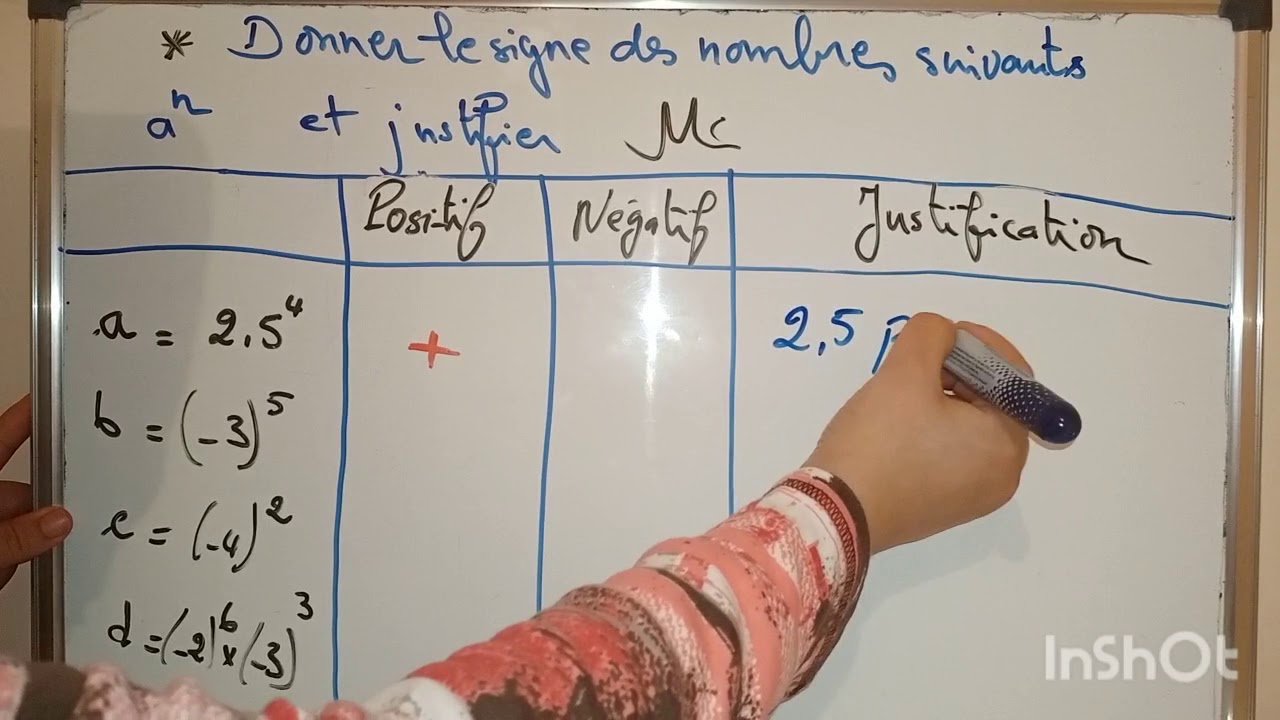 * Donner le signe des nombres suivants
aⁿ et justifier Mc
Positif Négatif Justification
a = 2,5⁴ + 2,5 p
b = (-3)⁵
c = (-4)²
d = (-2)⁶ × (-3)³
InShOt